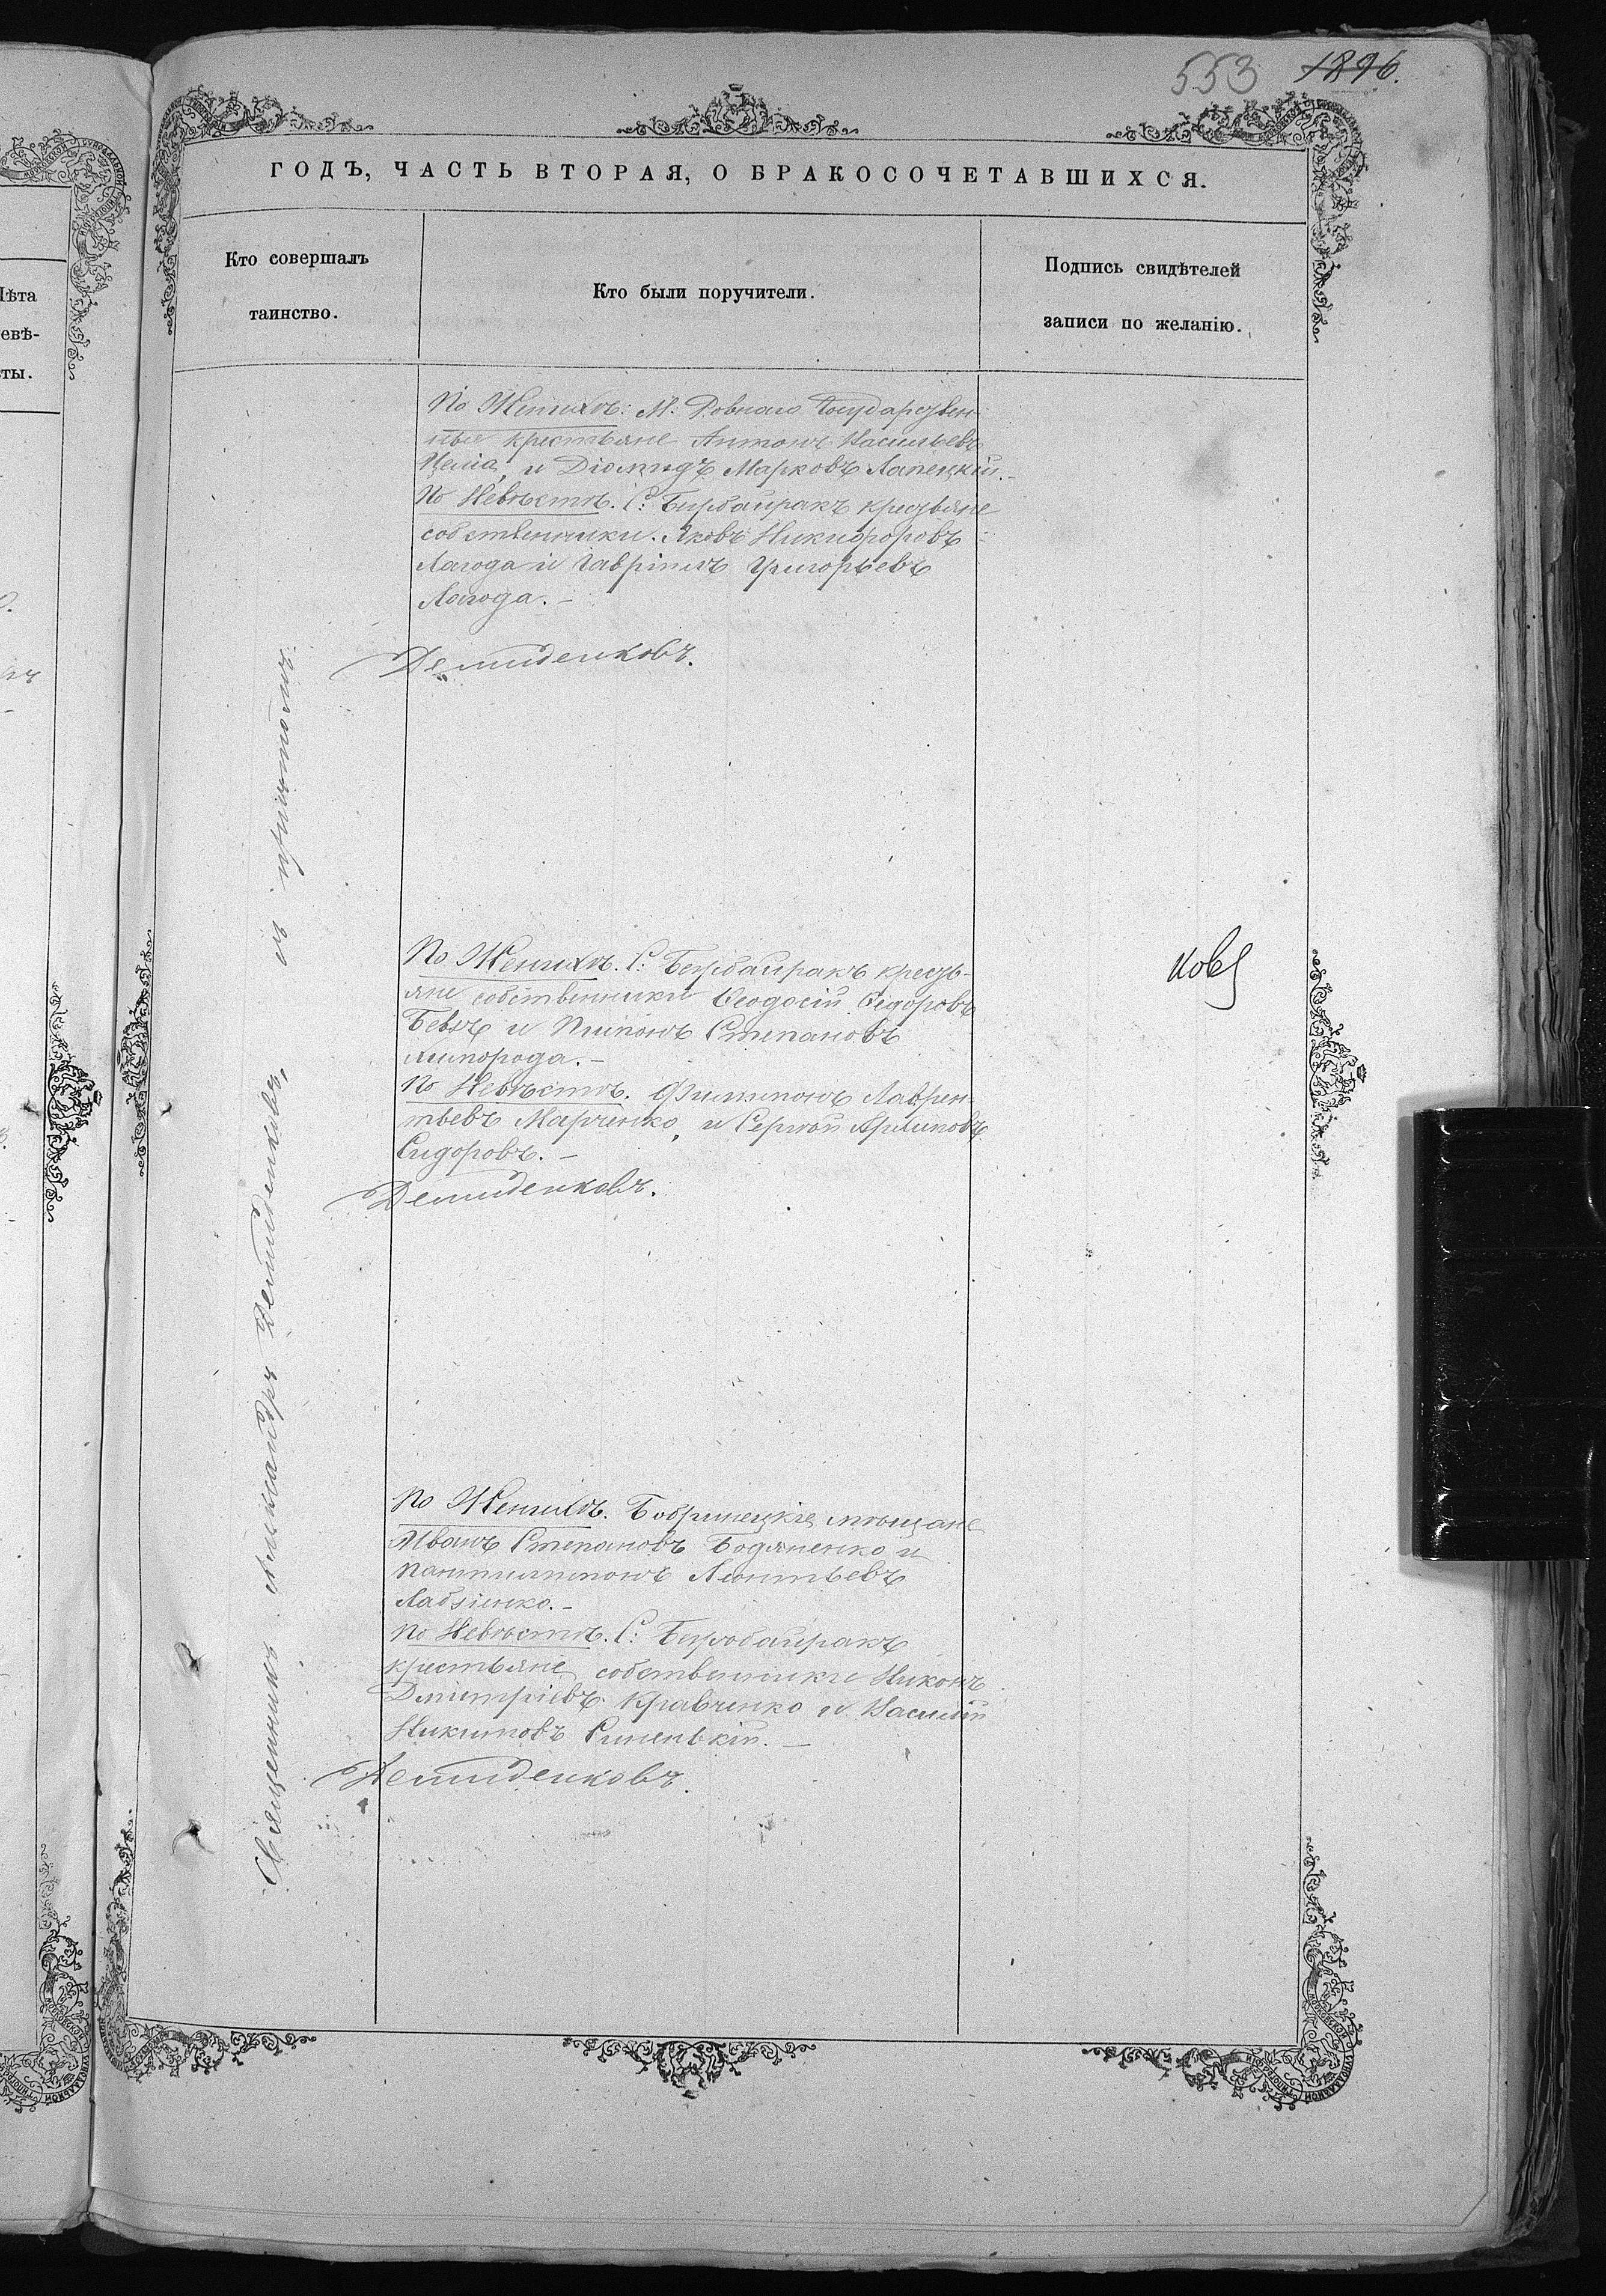 553 1896.
ГОДЪ, ЧАСТЬ ВТОРАЯ, О БРАКОСОЧЕТАВШИХСЯ.
Кто совершалъ
таинство.
Кто были поручители.
Подпись свидѣтелей
записи по желанію.
Лѣта
невѣ-
сты.
Священникъ Александръ Демиденковъ, съ причтомъ
По Женихѣ: М. Ровнаго Государствен-
ныя крестьяне Антонъ Васильевъ
и Діомидъ Марковъ Лапецкій.
По Невѣстѣ. С: Бирбайракъ крестьяне
собственники. Яковъ Никифоровъ
Лагода и Гавріилъ Григорьевъ
Лагода. –
Демиденковъ.
По Женихѣ. С: Бирбайракъ кресть-
яне собственники Ѳеодосій Ѳедоровъ
Бевзъ и Пименъ Степановъ
По Невѣстѣ. Филимонъ Лаврен-
тьевъ Марченко, и Сергѣй Архиповъ
Сидоровъ. –
Демиденковъ.
ковъ
По Женихѣ. Бобринецкіе мѣщане
Иванъ Степановъ Бодяненко и
Пантилимонъ Леонтьевъ
По Невѣстѣ. С: Бирбайракъ
крестьяне собственники Никонъ
Дмитріевъ Кравченко и Василій
Синенькій. –
Демиденковъ.